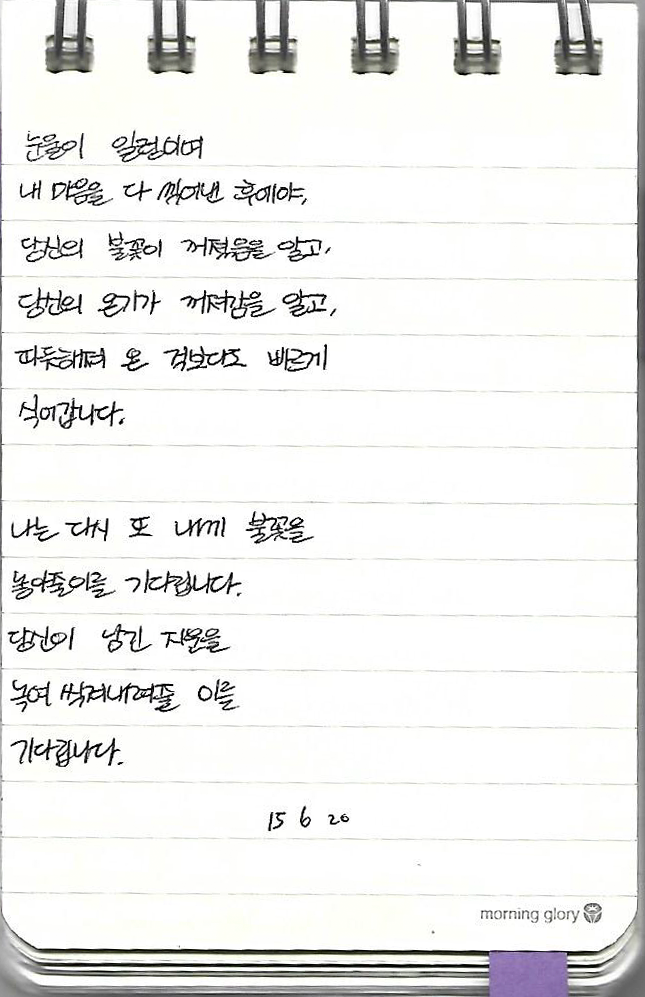 눈물이 일렁이며
내 마음을 다 씻어낸 후에야,
당신의 불꽃이 꺼졌음을 알고,
당신의 온기가 꺼져감을 알고,
따듯해져 온 것보다도 빠르게
식어갑니다.
나는 다시 또 내게 불꽃을
놓아줄이를 기다립니다.
당신이 남긴 지문을
녹여 씻겨내려줄 이를
기다립니다.
15 6 20
morning glory